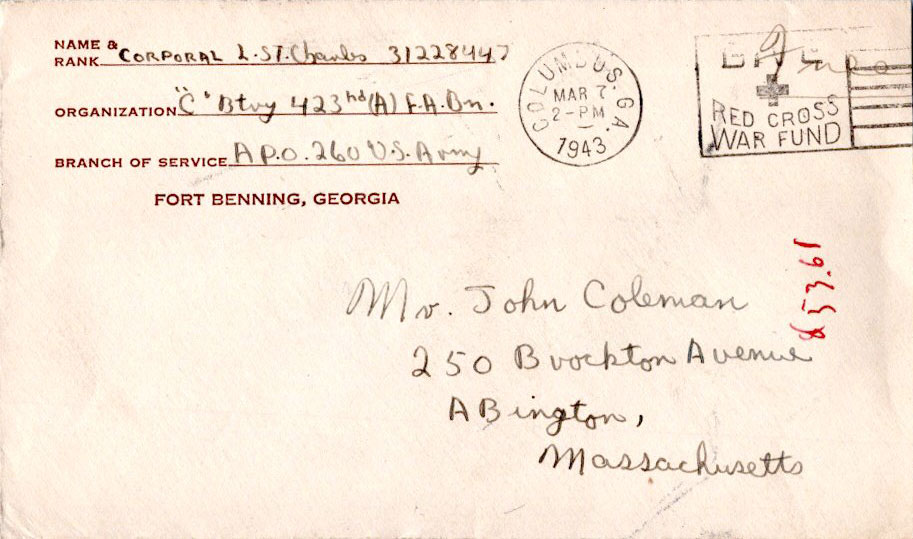 NAME &
RANK CORPORAL L. ST. Charles 31228447
ORGANIZATION "C" Btry 423nd (A) F.A. Bn.
BRANCH OF SERVICE A P.O. 260 U.S. Army
FORT BENNING, GEORGIA
COLUMBUS, GA.
MAR 7
2-PM
1943
Free
RED CROSS
WAR FUND
Mr. John Coleman
250 Brockton Avenue
ABington,
Massachusetts